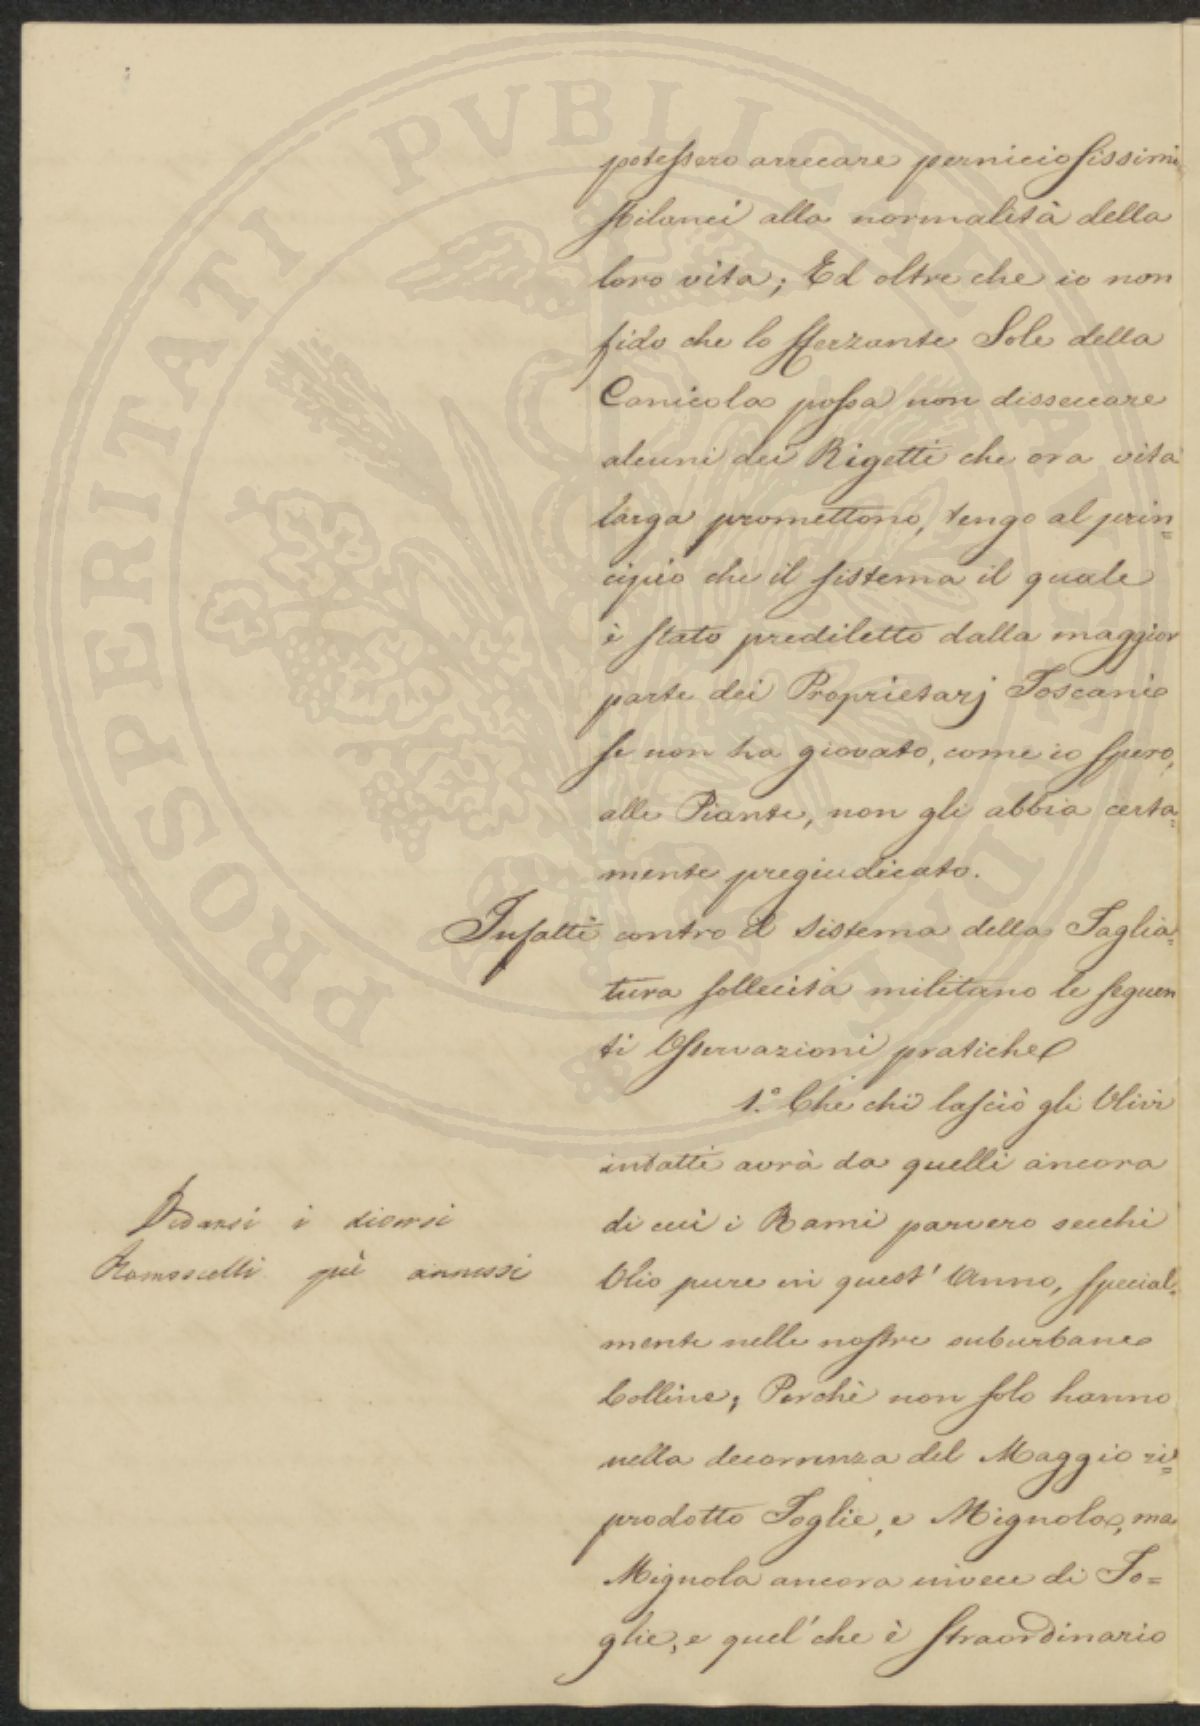 potessero arrecare perniciosissimi
sbilanci alla normalità della
loro vita; Ed oltre che io non
fido che lo sferzante Sole della
Canicola possa non disseccare
alcuni dei Rigetti che ora vita
larga promettono, tengo al prin=
cipio che il sistema il quale
è stato prediletto dalla maggior
parte dei Proprietarj Toscani
se non ha giovato, come io spero,
alle Piante, non gli abbia certa=
mente pregiudicato.
Infatti contro il Sistema della Taglia=
tura sollecita militano le seguen
ti Osservazioni pratiche
1.° Che chi lasciò gli Olivi
intatti avrà da quelli ancora
di cui i Rami parvero secchi
Olio pure in quest' Anno, special=
mente nelle nostre suburbane
Colline; Perchè non solo hanno
nella decorrenza del Maggio ri=
prodotto Foglie, e Mignola, ma
Mignola ancora invece di Fo=
glie, e quel' che è straordinario
Vedansi i diversi
Ramoscelli quì annessi
PROSPERITATI PVBLICAE AVGENDAE